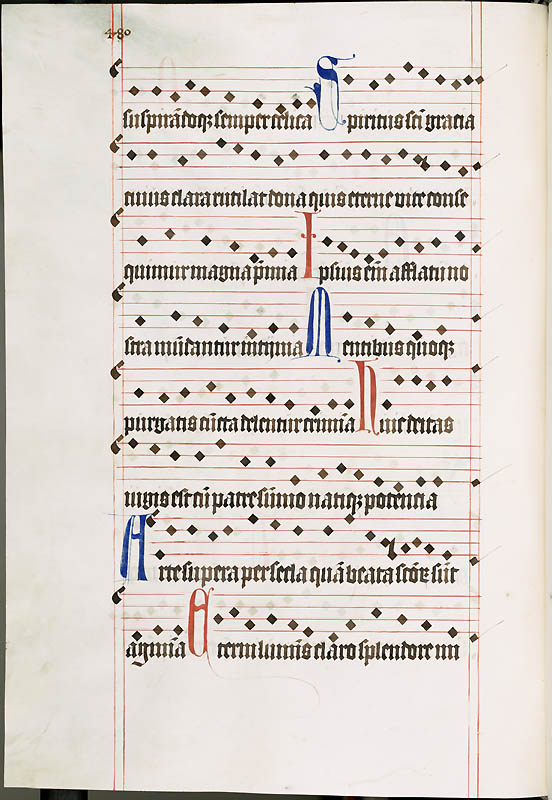 480
suspirādoq; semper celica Spiritus scī gracia
cuius clara rutilat dona quis eterne vite conse
quimur magna p̄mia Ipsius em̄ afflatu no
stra mūdantur intima Mentibus quoq;
purgatis cūcta delentur crimīa Huic deitas
iugis est cū patre sūmo natiq; potencia
Arce supera per secla quā beata scōꝝ sūt
agmīa Eterni lumīs claro splendore mi